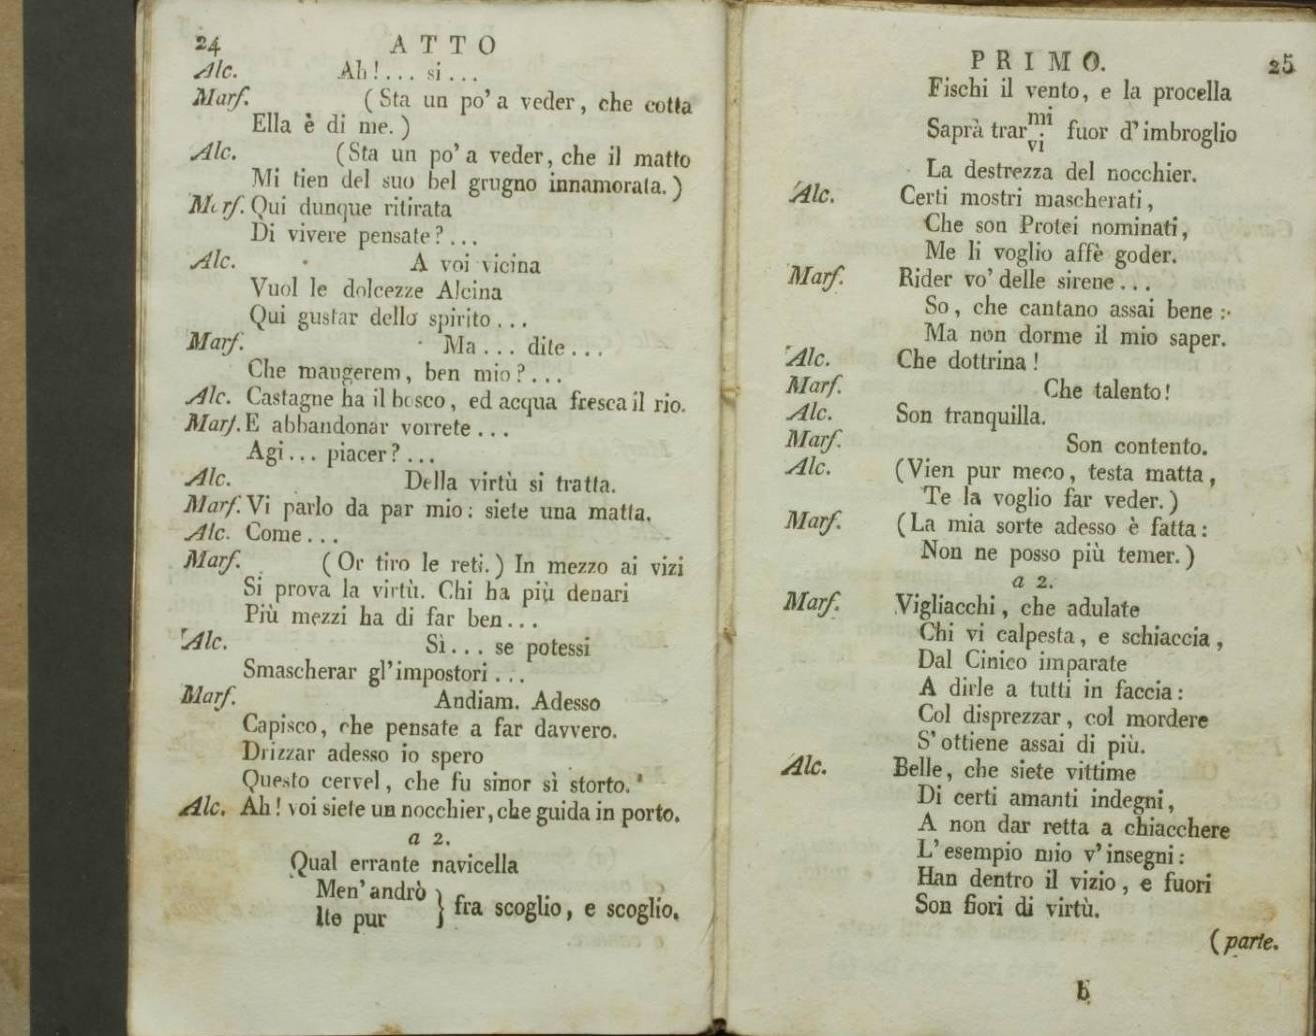 24 ATTO
Alc. Ah!... si...
Marf. (Sta un po' a veder, che cotta
Ella è di me.)
Alc. (Sta un po' a veder, che il matto
Mi tien del suo bel grugno innamorata.)
Marf. Qui dunque ritirata
Di vivere pensate?...
Alc. A voi vicina
Vuol le dolcezze Alcina
Qui gustar dello spirito...
Marf. Ma... dite...
Che mangerem, ben mio?...
Alc. Castagne ha il bosco, ed acqua fresca il rio.
Marf. E abbandonar vorrete...
Agi... piacer?...
Alc. Della virtù si tratta.
Marf. Vi parlo da par mio: siete una matta.
Alc. Come...
Marf. (Or tiro le reti.) In mezzo ai vizi
Si prova la virtù. Chi ha più denari
Più mezzi ha di far ben...
Alc. Sì... se potessi
Smascherar gl'impostori...
Marf. Andiam. Adesso
Capisco, che pensate a far davvero.
Drizzar adesso io spero
Questo cervel, che fu sinor sì storto.
Alc. Ah! voi siete un nocchier, che guida in porto.
a 2.
Qual errante navicella
Men' andrò
Ite pur } fra scoglio, e scoglio.
PRIMO. 25
Fischi il vento, e la procella
Saprà trar mi vi fuor d'imbroglio
La destrezza del nocchier.
Alc. Certi mostri mascherati,
Che son Protei nominati,
Me li voglio affè goder.
Marf. Rider vo' delle sirene...
So, che cantano assai bene:
Ma non dorme il mio saper.
Alc. Che dottrina!
Marf. Che talento!
Alc. Son tranquilla.
Marf. Son contento.
Alc. (Vien pur meco, testa matta,
Te la voglio far veder.)
Marf. (La mia sorte adesso è fatta:
Non ne posso più temer.)
a 2.
Marf. Vigliacchi, che adulate
Chi vi calpesta, e schiaccia,
Dal Cinico imparate
A dirle a tutti in faccia:
Col disprezzar, col mordere
S'ottiene assai di più.
Alc. Belle, che siete vittime
Di certi amanti indegni,
A non dar retta a chiacchere
L'esempio mio v'insegni:
Han dentro il vizio, e fuori
Son fiori di virtù.
(parte.
b